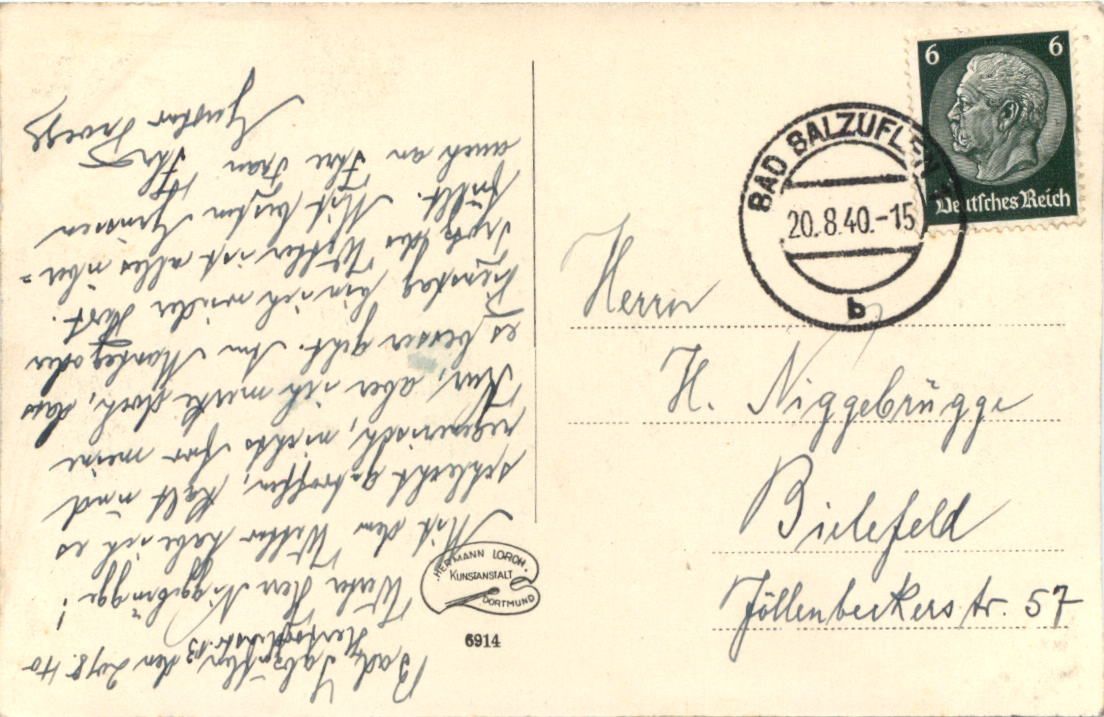 Bad Salzuflen, den 20/8.40
Werter Herr Niggebrügge!
Mit dem Wetter habe ich es
schlecht getroffen, kalt und
regnerisch, nichts für meine
Kur, aber ich merke doch, dass
es besser geht. Am Montag oder
Dienstag bin ich wieder dort.
Trotz des Wetter ist alles über=
füllt. Mit besten Grüssen
auch an Ihre Frau
Ihr
Gustav
HERMANN LORCH.
KUNSTANSTALT
DORTMUND
6914
6 6
Deutsches Reich
BAD SALZUFLEN
20.8.40.-15
b
Herrn
H. Niggebrügge
Bielefeld
Jöllenbeckerstr. 57